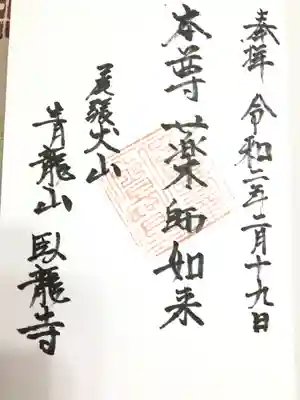 奉拝 令和二年二月十九日
本尊 薬師如来
尾張犬山
青龍山 臥龍寺